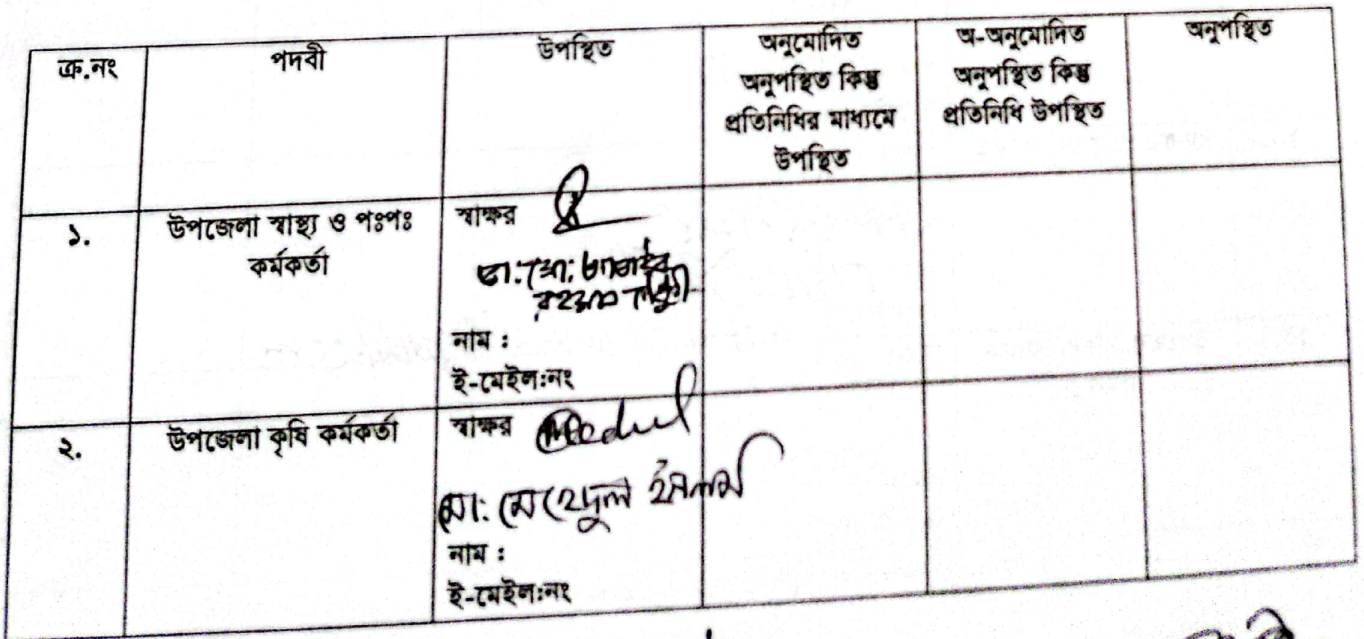 ক্র.নং পদবী উপস্থিত অনুমোদিত অনুপস্থিত কিন্তু প্রতিনিধির মাধ্যমে উপস্থিত অ-অনুমোদিত অনুপস্থিত কিন্তু প্রতিনিধি উপস্থিত অনুপস্থিত
১. উপজেলা স্বাস্থ্য ও পঃপঃ কর্মকর্তা
স্বাক্ষর
ডা: মো:
রহমান
নাম :
ই-মেইল:নং
২. উপজেলা কৃষি কর্মকর্তা
স্বাক্ষর
মো: মেহেদুল ইসলাম
নাম :
ই-মেইল:নং